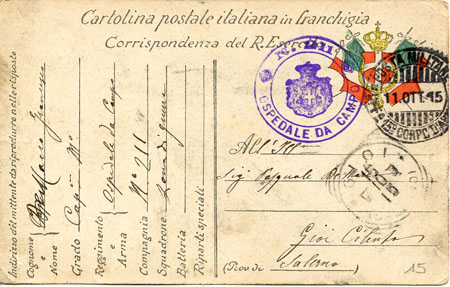 Cartolina postale italiana in franchigia
Corrispondenza del R. Esercito
N. 211
OSPEDALE DA CAMPO
POSTA MILITARE
11.OTT.15
CORPO D'
All'
Sig Pasquale
Gioi Cilento
(Prov di) Salerno
15
Indirizzo del mittente da riprodurre nelle risposte
Cognome
Nome
Grado Cap
Reggimento Ospedale da Campo
Arma
Compagnia N° 211
Squadrone Zona di guerra
Batteria
Riparti speciali